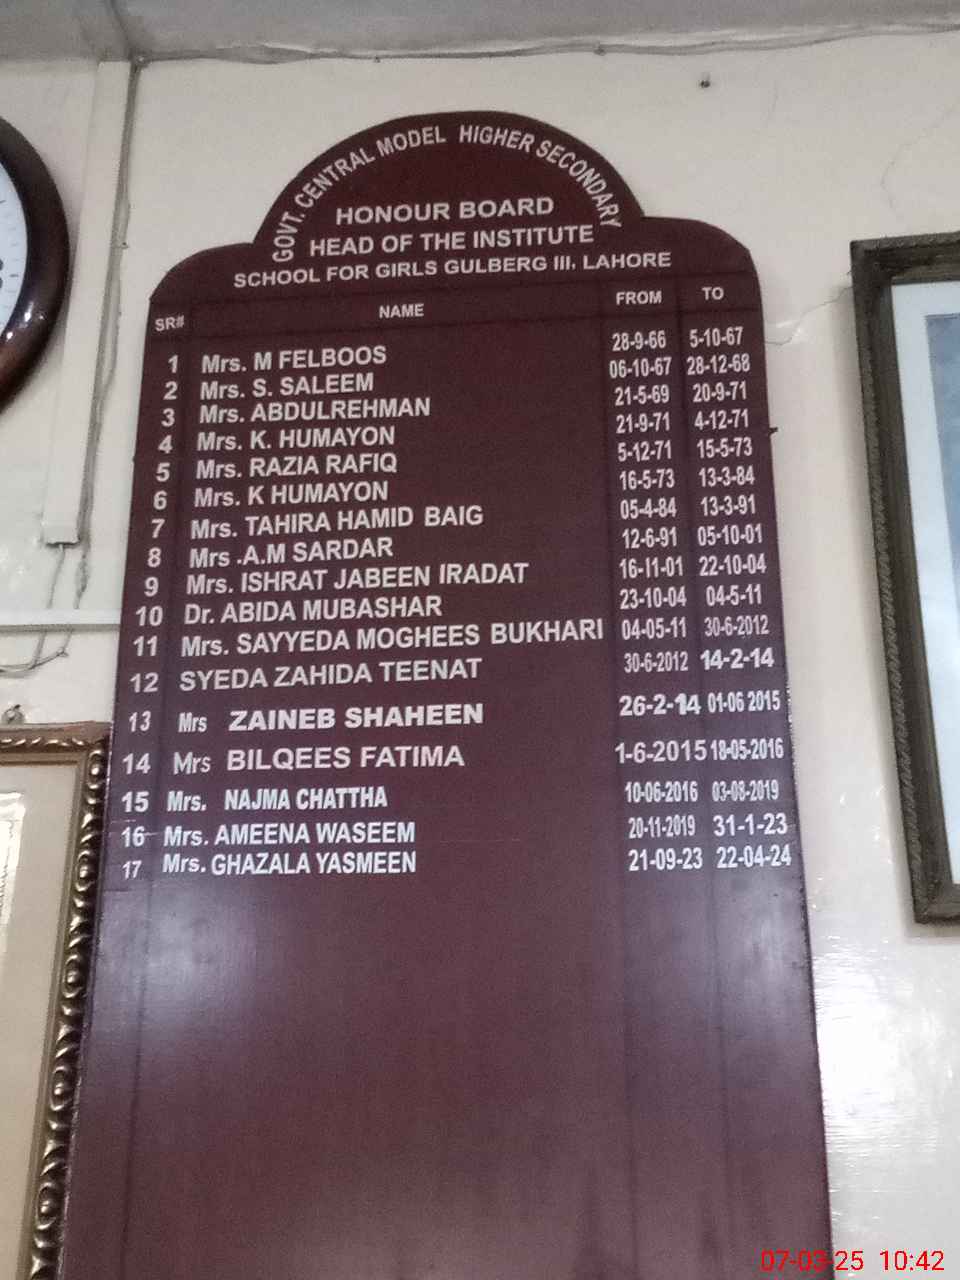 GOVT. CENTRAL MODEL HIGHER SECONDARY
HONOUR BOARD
HEAD OF THE INSTITUTE
SCHOOL FOR GIRLS GULBERG III, LAHORE
SR# NAME FROM TO
1 Mrs. M FELBOOS 28-9-66 5-10-67
2 Mrs. S. SALEEM 06-10-67 28-12-68
3 Mrs. ABDULREHMAN 21-5-69 20-9-71
4 Mrs. K. HUMAYON 21-9-71 4-12-71
5 Mrs. RAZIA RAFIQ 5-12-71 15-5-73
6 Mrs. K HUMAYON 16-5-73 13-3-84
7 Mrs. TAHIRA HAMID BAIG 05-4-84 13-3-91
8 Mrs .A.M SARDAR 12-6-91 05-10-01
9 Mrs. ISHRAT JABEEN IRADAT 16-11-01 22-10-04
10 Dr. ABIDA MUBASHAR 23-10-04 04-5-11
11 Mrs. SAYYEDA MOGHEES BUKHARI 04-05-11 30-6-2012
12 SYEDA ZAHIDA TEENAT 30-6-2012 14-2-14
13 Mrs ZAINEB SHAHEEN 26-2-14 01-06 2015
14 Mrs BILQEES FATIMA 1-6-2015 18-05-2016
15 Mrs. NAJMA CHATTHA 10-06-2016 03-08-2019
16 Mrs. AMEENA WASEEM 20-11-2019 31-1-23
17 Mrs. GHAZALA YASMEEN 21-09-23 22-04-24
07-03-25 10:42